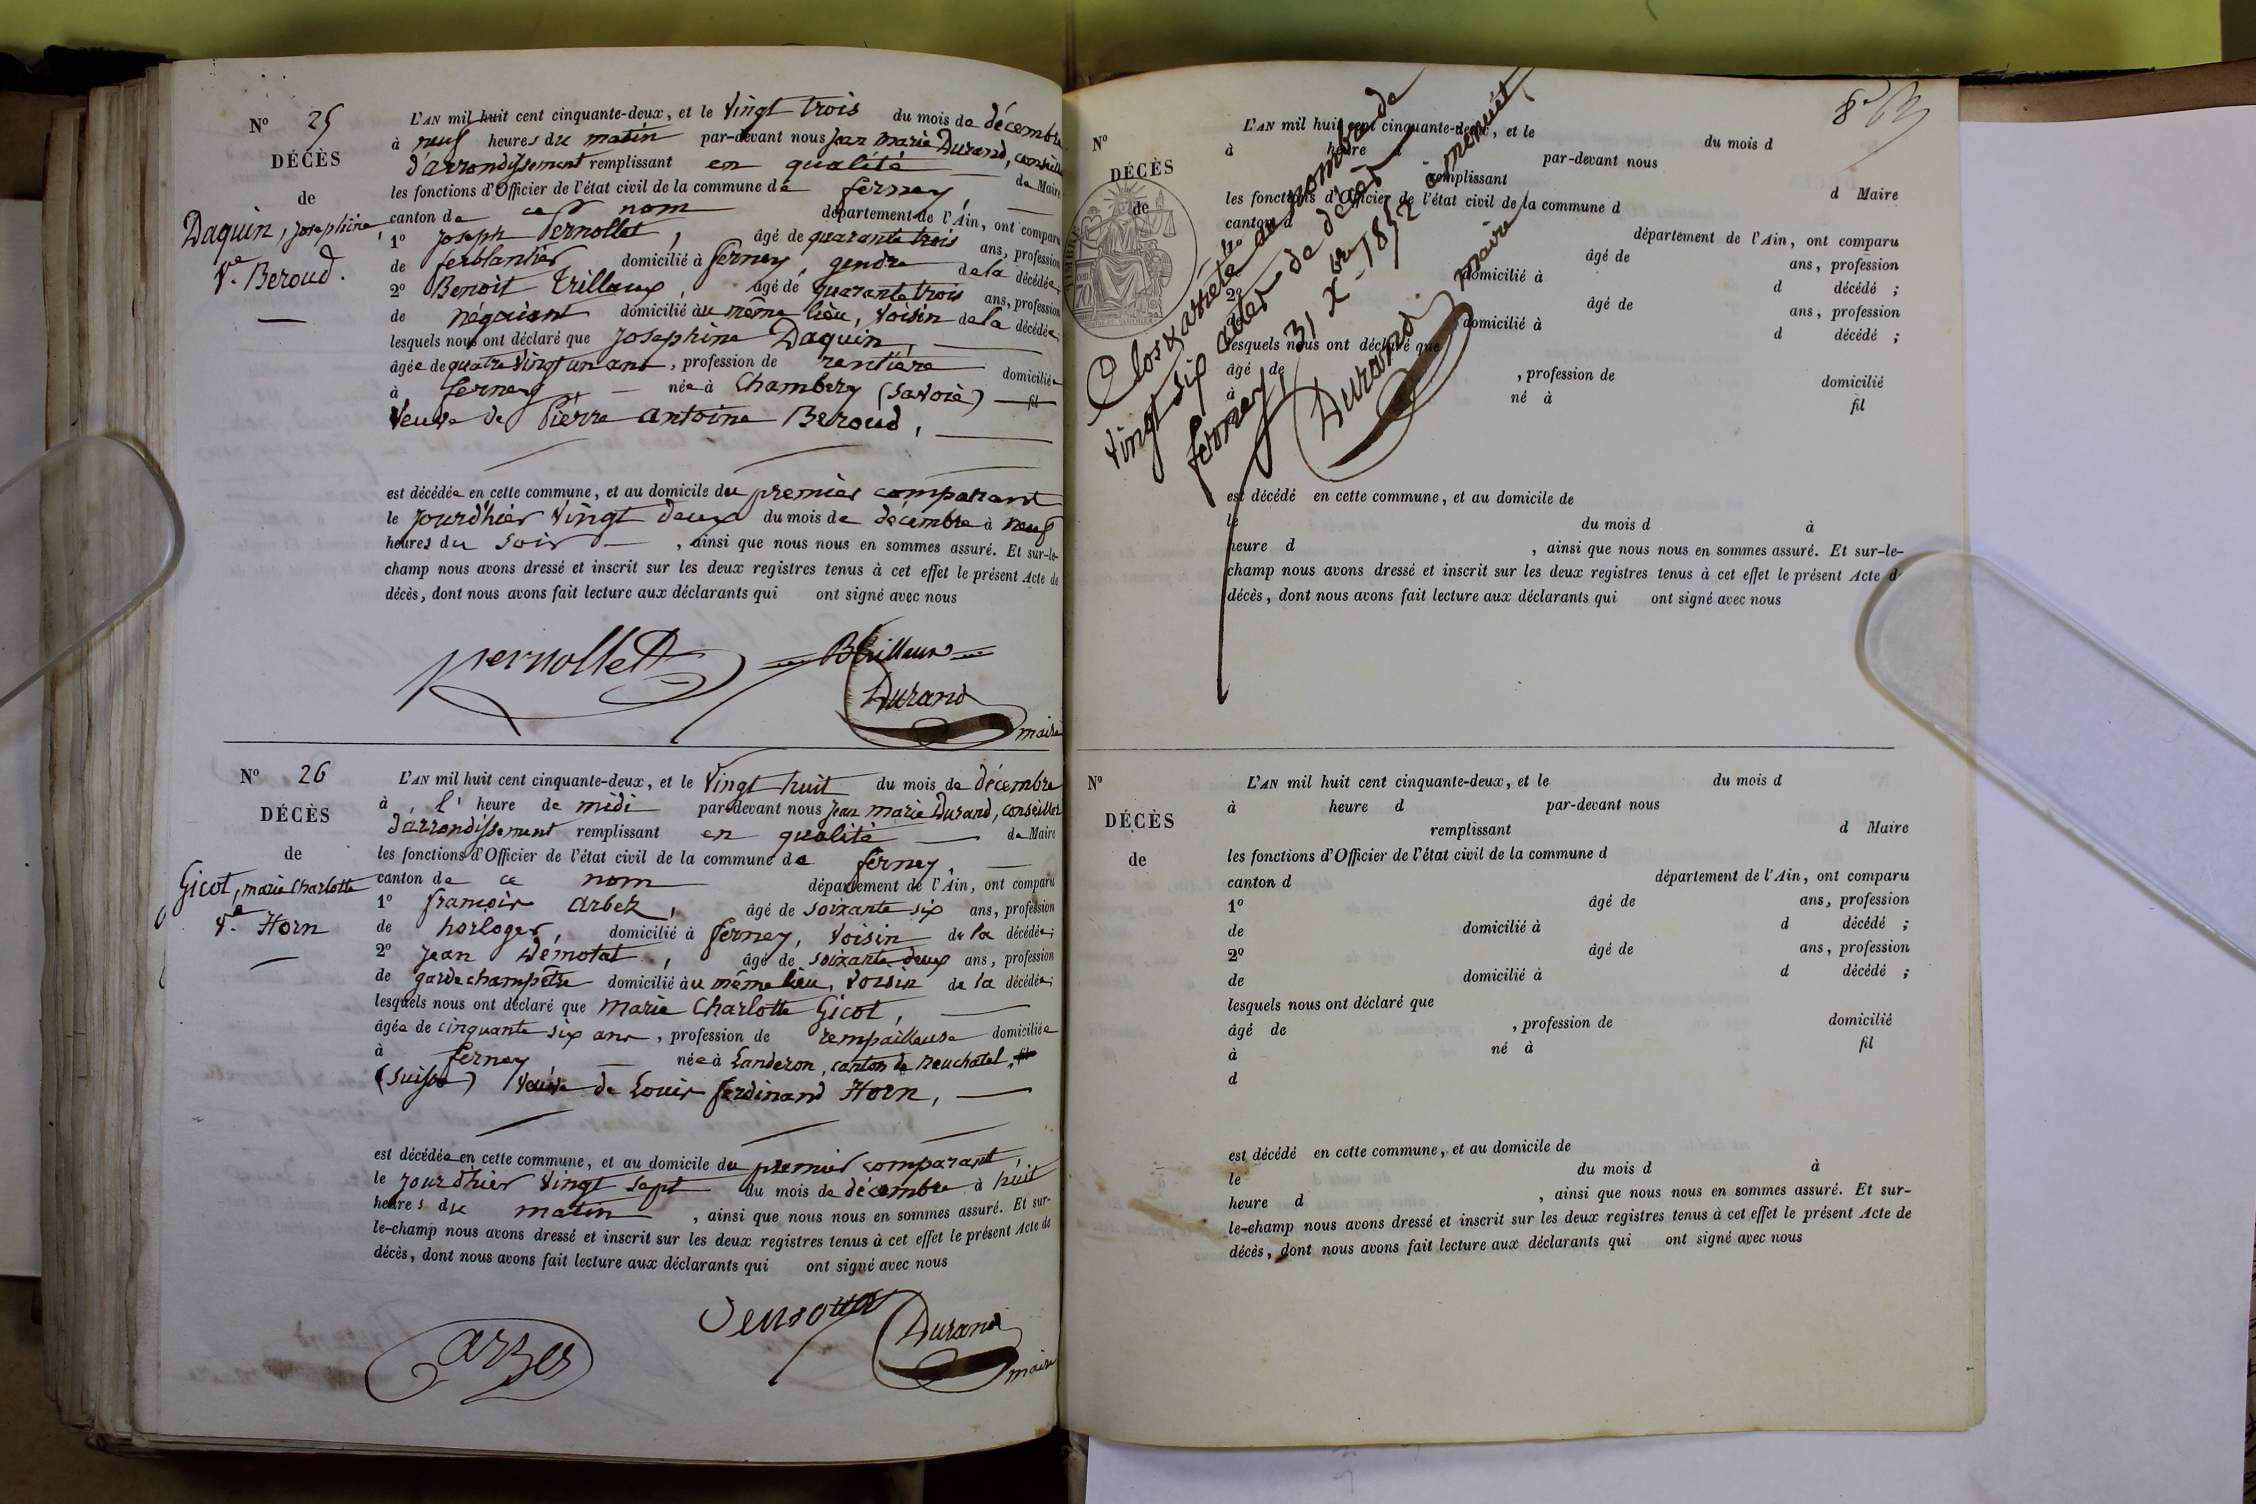 Nº 25
DÉCÈS
de
Daquin, Josephine,
Ve. Beroud.
L'AN mil huit cent cinquante-deux, et le vingt trois du mois de décembre
à neuf heures du matin par-devant nous Jean marie Durand, conseiller
d'arrondissement remplissant en qualité de Maire
les fonctions d'Officier de l'état civil de la commune de ferney,
canton de ce nom département de l'Ain, ont comparu
1º Joseph Pernollet, âgé de quarante trois ans, profession
de ferblantier domicilié à ferney, gendre de la décédée
2º Benoit Trillaux, âgé de quarante trois ans, profession
de négociant domicilié au même lieu, voisin de la décédée
lesquels nous ont déclaré que Josephine Daquin,
âgée de quatre vingt un ans, profession de rentière domiciliée
à ferney née à Chambery (Savoie) fil
veuve de Pierre antoine Beroud,
est décédée en cette commune, et au domicile du premier comparant
le jourd'hier vingt deux du mois de décembre à neuf
heures du soir, ainsi que nous nous en sommes assuré. Et sur-le-
champ nous avons dressé et inscrit sur les deux registres tenus à cet effet le présent Acte de
décès, dont nous avons fait lecture aux déclarants qui ont signé avec nous
pernollet BTrillaux
Durand
maire
Nº 26
DÉCÈS
de
Gicot, marie Charlotte
Ve. Horn
L'AN mil huit cent cinquante-deux, et le vingt huit du mois de décembre
à l' heure de midi par-devant nous Jean marie Durand, conseiller
d'arrondissement remplissant en qualité de Maire
les fonctions d'Officier de l'état civil de la commune de ferney,
canton de ce nom département de l'Ain, ont comparu
1º françois Arbez, âgé de soixante six ans, profession
de horloger, domicilié à ferney, voisin de la décédée;
2º Jean Démotat, âgé de soixante deux ans, profession
de garde champêtre domicilié au même lieu, voisin de la décédée;
lesquels nous ont déclaré que marie Charlotte Gicot,
âgée de cinquante six ans, profession de rempailleuse domiciliée
à ferney née à Landeron, canton de neuchatel,
(Suisse) veuve de Louis ferdinand Horn,
est décédée en cette commune, et au domicile du premier comparant,
le jourd'hier vingt sept du mois de décembre à huit
heures du matin, ainsi que nous nous en sommes assuré. Et sur-
le-champ nous avons dressé et inscrit sur les deux registres tenus à cet effet le présent Acte de
décès, dont nous avons fait lecture aux déclarants qui ont signé avec nous
arbez
Durand
maire
Nº
DÉCÈS
de
L'AN mil huit cent cinquante-deux, et le du mois d
à heure d par-devant nous
remplissant d Maire
les fonctions d'Officier de l'état civil de la commune d
canton d département de l'Ain, ont comparu
1º âgé de ans, profession
de domicilié à d décédé ;
2º âgé de ans, profession
de domicilié à d décédé ;
lesquels nous ont déclaré que
âgé de , profession de domicilié
à né à fil
Clos & arreté au nombre de
vingt six actes de décès
ferney, 31 Xbre 1852 à menuit,
Durand maire
est décédé en cette commune, et au domicile de
le du mois d à
heure d , ainsi que nous nous en sommes assuré. Et sur-le-
champ nous avons dressé et inscrit sur les deux registres tenus à cet effet le présent Acte de
décès, dont nous avons fait lecture aux déclarants qui ont signé avec nous
Nº
DÉCÈS
de
L'AN mil huit cent cinquante-deux, et le du mois d
à heure d par-devant nous
remplissant d Maire
les fonctions d'Officier de l'état civil de la commune d
canton d département de l'Ain, ont comparu
1º âgé de ans, profession
de domicilié à d décédé ;
2º âgé de ans, profession
de domicilié à d décédé ;
lesquels nous ont déclaré que
âgé de , profession de domicilié
à né à fil
d
est décédé en cette commune, et au domicile de
le du mois d à
heure d , ainsi que nous nous en sommes assuré. Et sur-
le-champ nous avons dressé et inscrit sur les deux registres tenus à cet effet le présent Acte de
décès, dont nous avons fait lecture aux déclarants qui ont signé avec nous